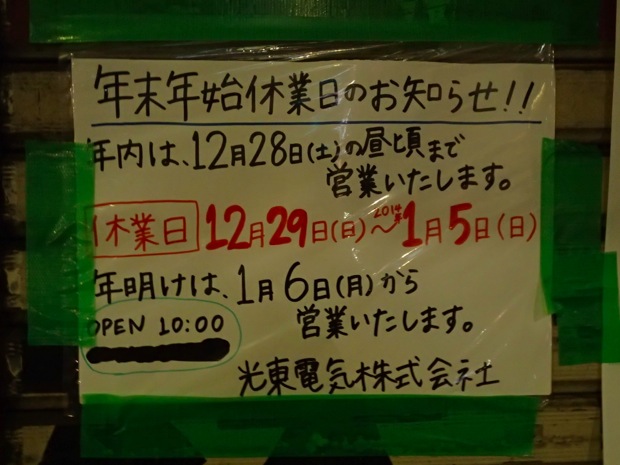 年末年始休業日のお知らせ!!
年内は、12月28日(土)の昼頃まで
営業いたします。
休業日 12月29日(日)～2014年1月5日(日)
年明けは、1月6日(月)から
営業いたします。
OPEN 10:00
光東電気株式会社